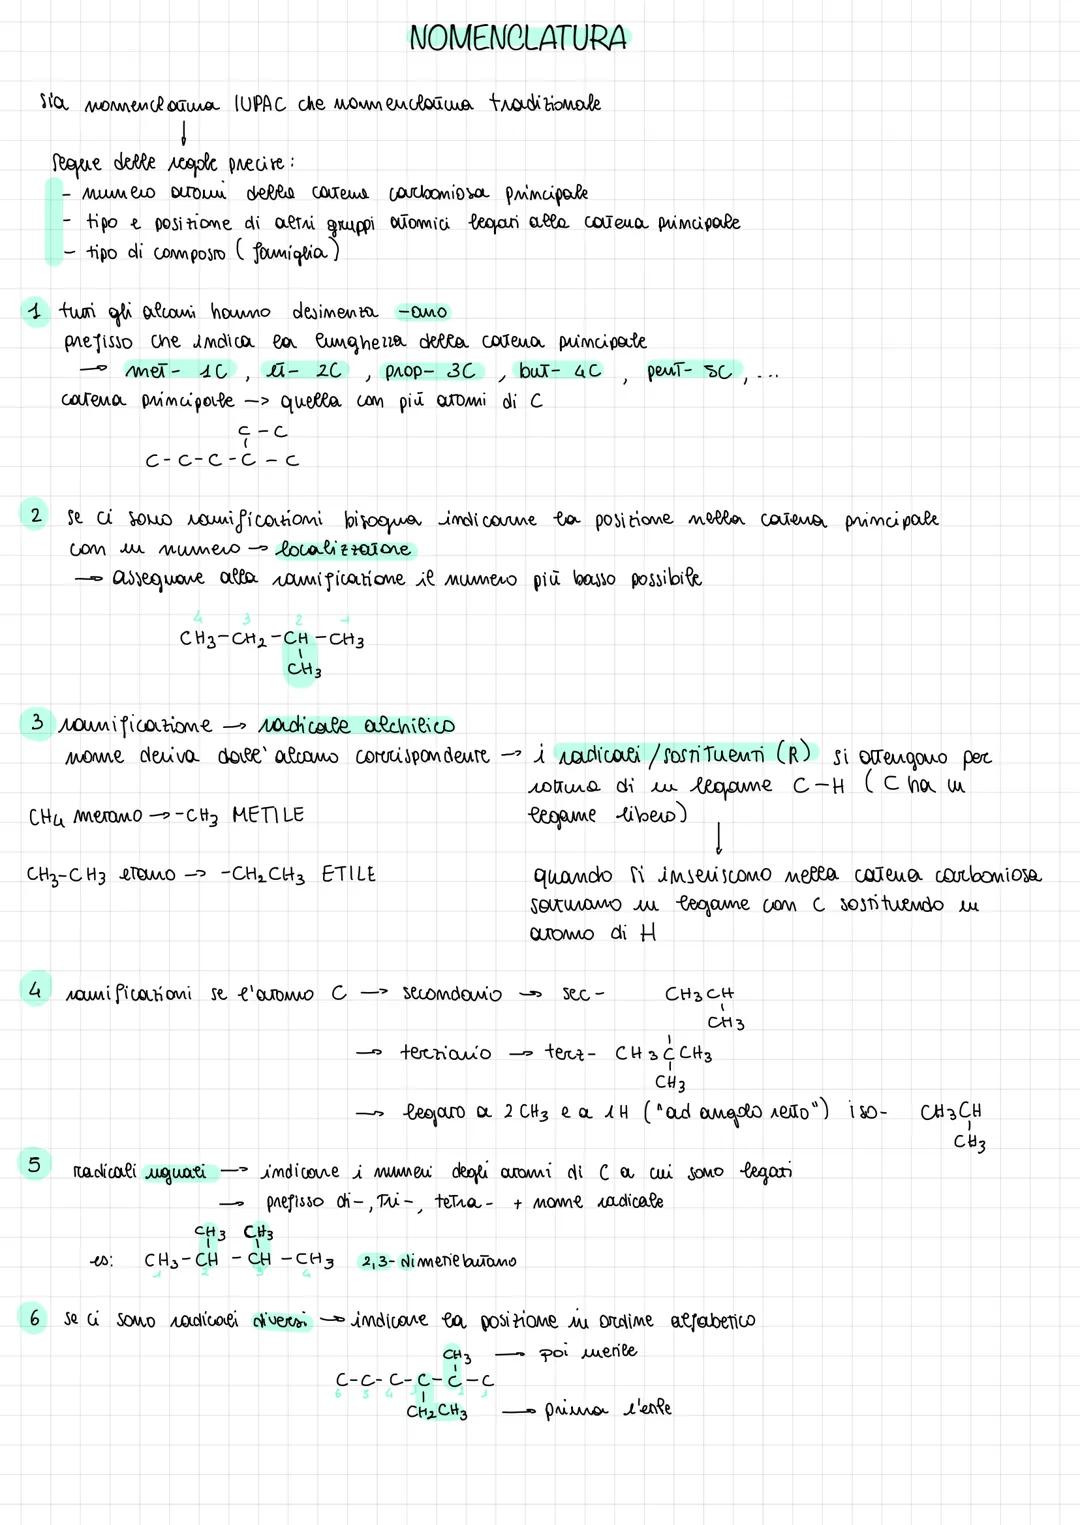 NOMENCLATURA
sia nomenclatura IUPAC che nomenclatura tradizionale
↓
segue delle regole precise:
- numero atomi della catena carboniosa principale
- tipo e posizione di altri gruppi atomici legati alla catena principale
- tipo di composto (famiglia)
1 tutti gli alcani hanno desinenza -ano
prefisso che indica la lunghezza della catena principale
→ met- 1C, et- 2C, prop- 3C, but- 4C, pent- 5C, ...
catena principale -> quella con più atomi di C
C-C
C-C-C-C-C
2 se ci sono ramificazioni bisogna indicarne la posizione nella catena principale
con un numero → localizzatore
→ assegnare alla ramificazione il numero più basso possibile
4 3 2 1
CH3-CH2-CH-CH3
CH3
3 ramificazione → radicale alchilico
nome deriva dall'alcano corrispondente → i radicali/sostituenti (R) si ottengono per
rottura di un legame C-H (C ha un
legame libero)
CH4 metano → -CH3 METILE
↓
CH3-CH3 etano → -CH2CH3 ETILE
quando si inseriscono nella catena carboniosa
saturano un legame con C sostituendo un
atomo di H
4 ramificazioni se l'atomo C → secondario → sec- CH3CH
CH3
→ terziario → terz- CH3CCH3
CH3
→ legato a 2 CH3 e a 1H ("ad angolo retto") iso- CH3CH
CH3
5 radicali uguali → indicare i numeri degli atomi di C a cui sono legati
→ prefisso di-, tri-, tetra- + nome radicale
CH3 CH3
es: CH3-CH-CH-CH3 2,3-dimetilebutano
1 2 3 4
6 se ci sono radicali diversi → indicare la posizione in ordine alfabetico
CH3 → poi metile
C-C-C-C-C-C
6 5 4 3 2 1
CH2CH3 → prima l'etile